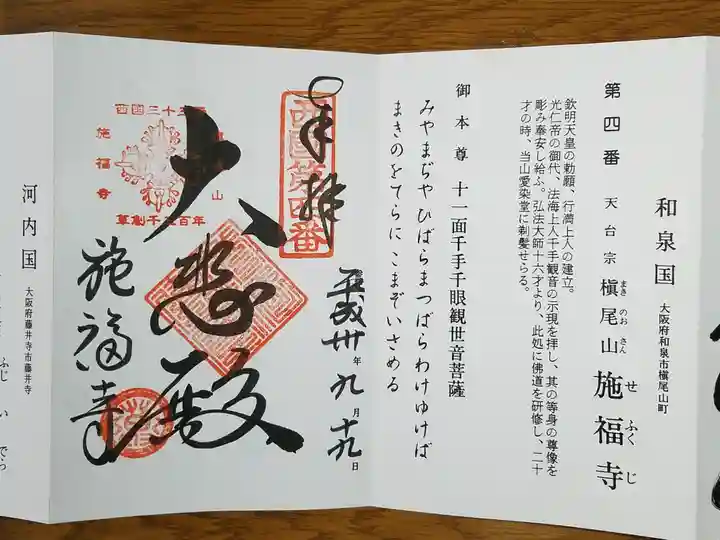 和泉国 大阪府和泉市槇尾山町
第四番 天台宗 槇尾山 施福寺
まき のお さん せ ふく じ
欽明天皇の勅願、行満上人の建立。
光仁帝の御代、法海上人千手観音の示現を拝し、其の等身の尊像を
彫み奉安し給ふ。弘法大師十六才より、此処に佛道を研修し、二十
才の時、当山愛染堂に剃髪せらる。
御本尊 十一面千手千眼観世音菩薩
みやまぢやひばらまつばらわけゆけば
まきのをてらにこまぞいさめる
奉拝
西国第四番
平成卅年九月十九日
大悲殿
西国三十三所
施福寺
草創千三百年
施福寺
河内国 大阪府藤井寺市藤井寺
ふじ い でら